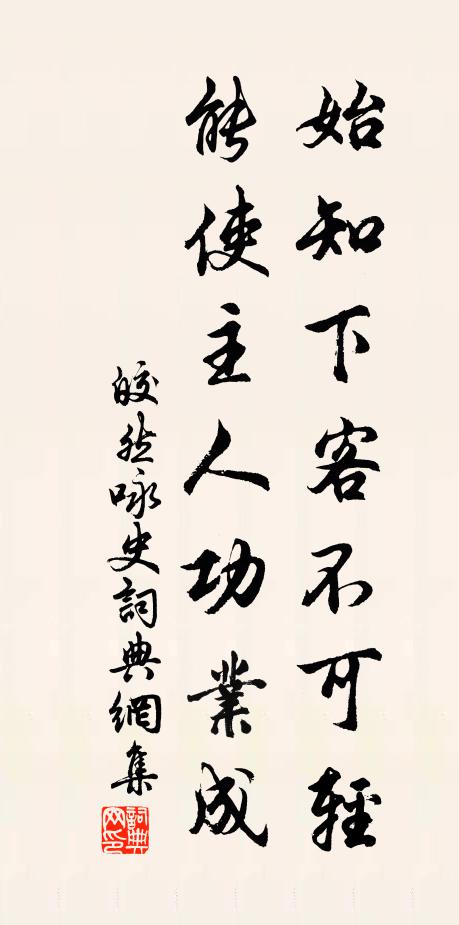 始知下客不可輕
能使主人功業成
皎然咏史詞典網集
詞典网印